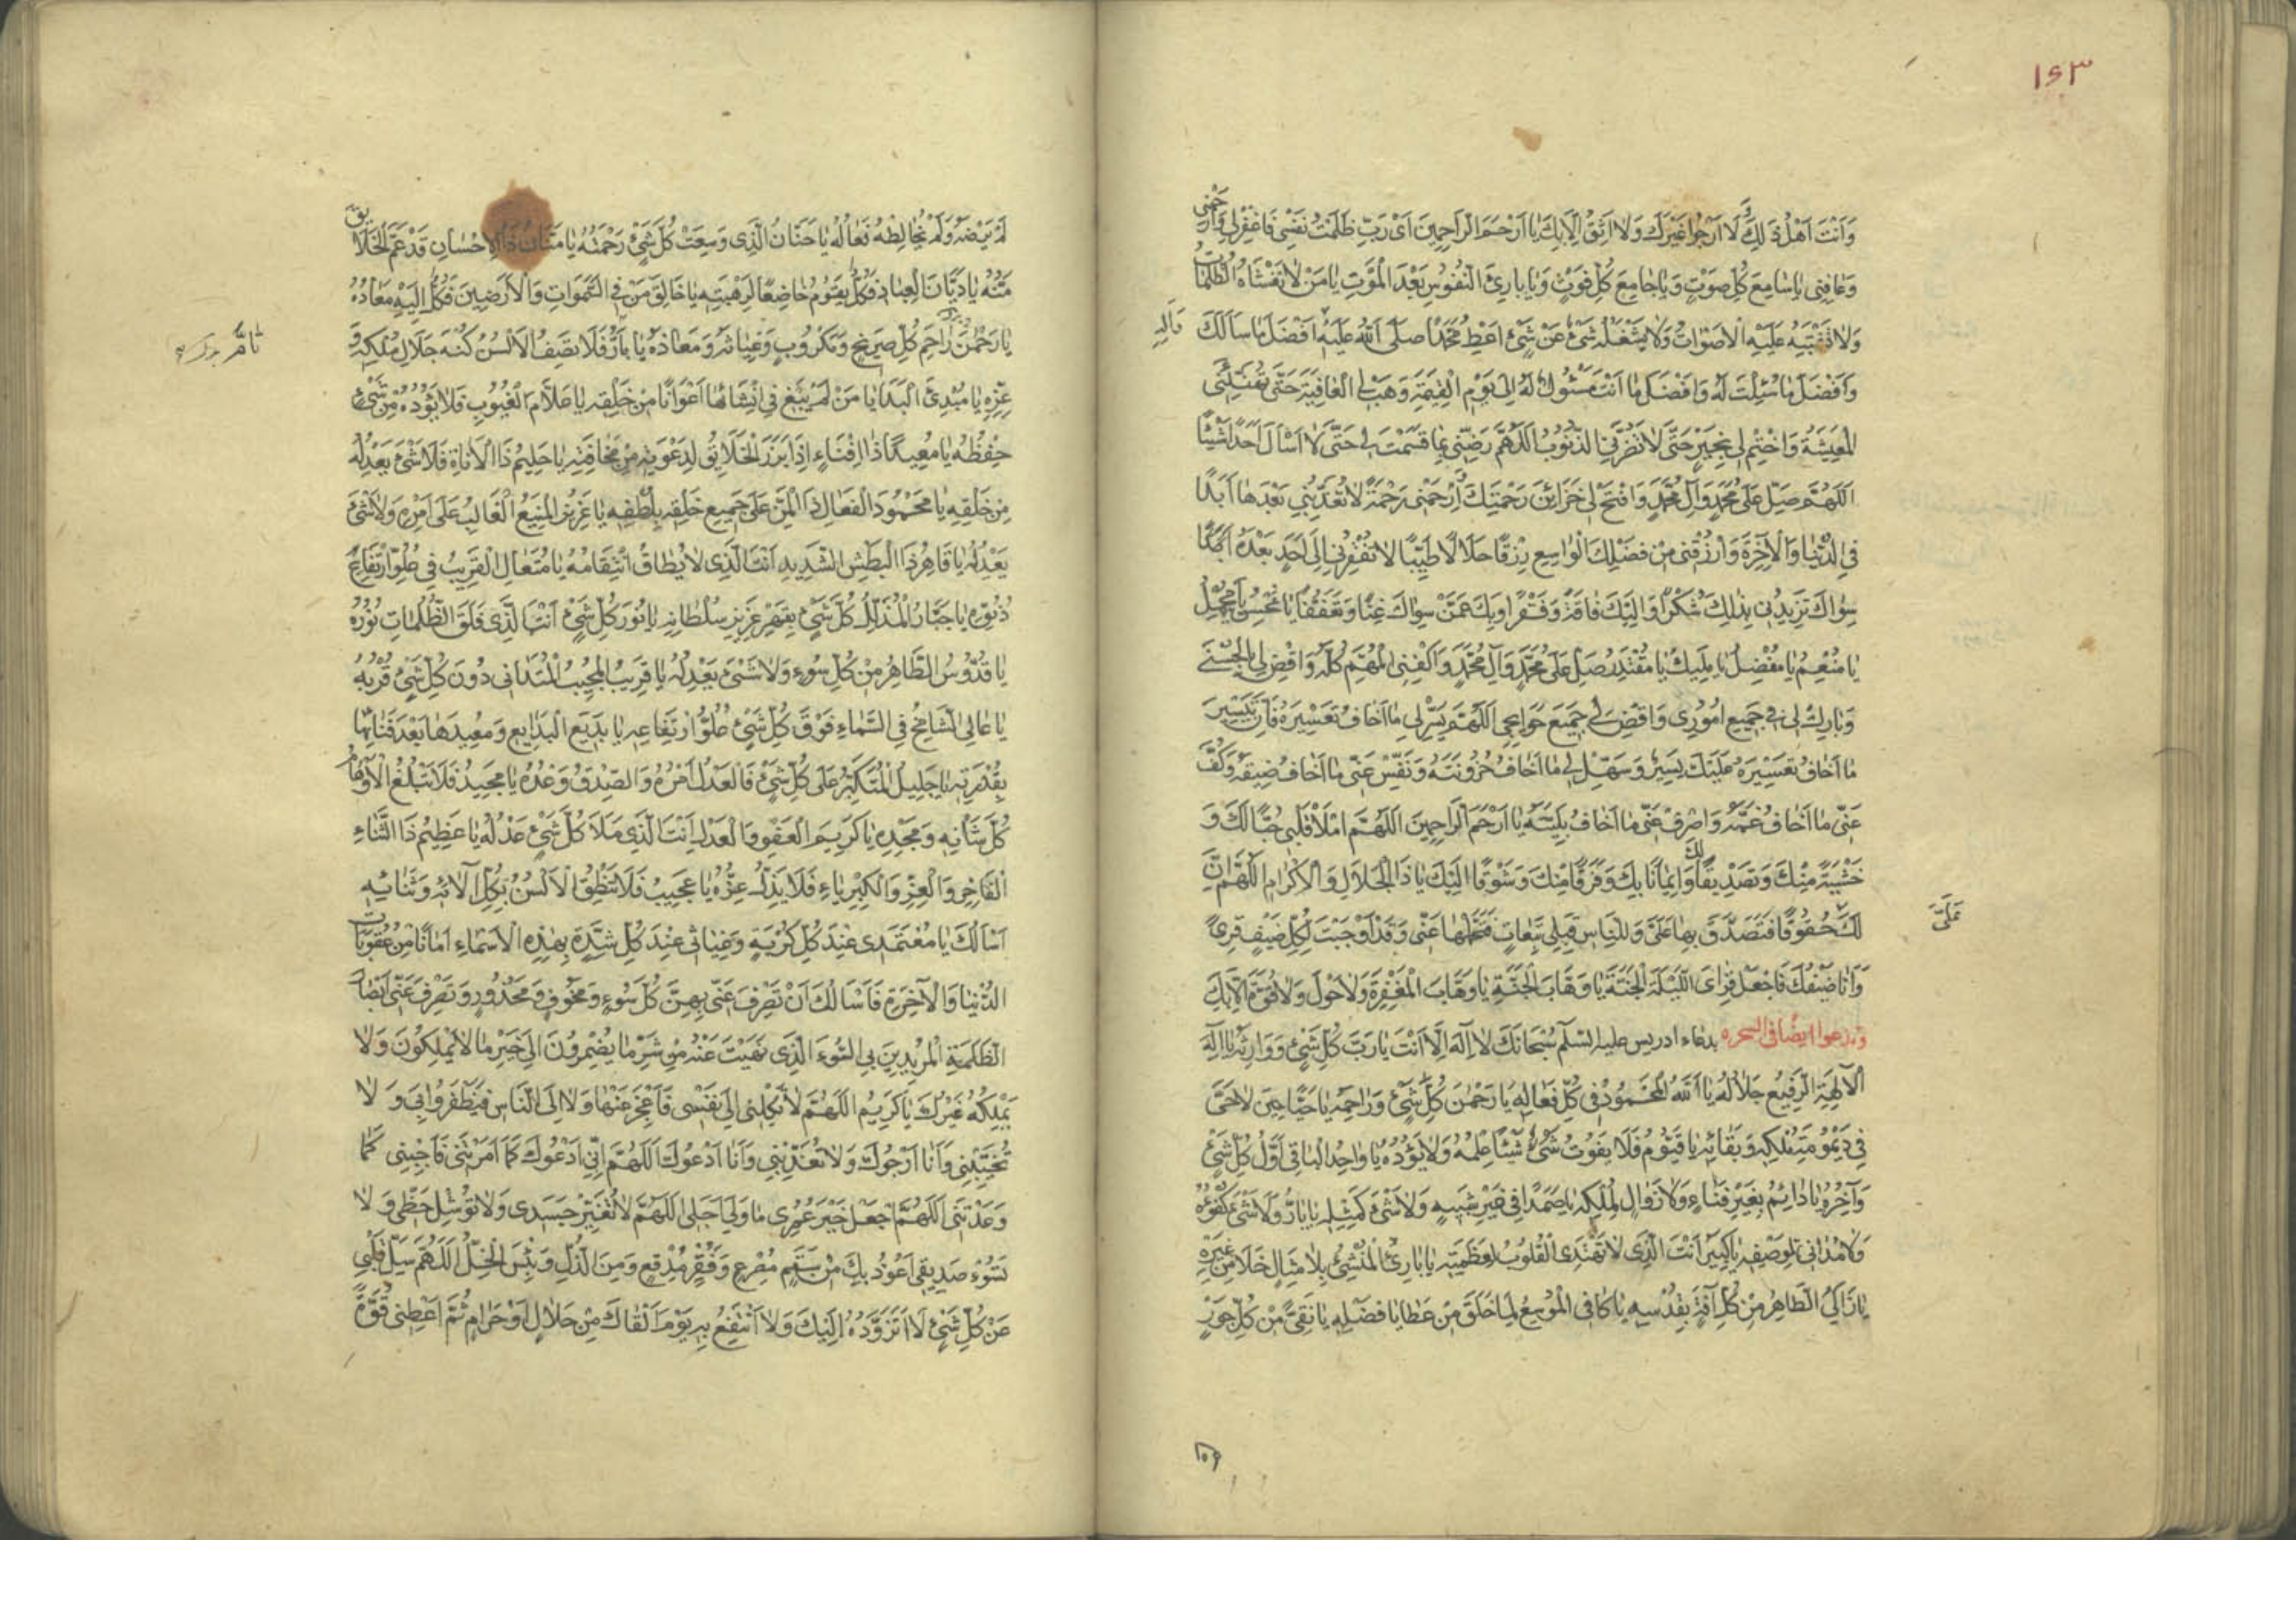 ١٥٣
وَاَنْتَ اَهْلُ ذٰلِكَ لَا اَرْجُوا غَيْرَكَ وَلَا اَثِقُ اِلَّا بِكَ يَا اَرْحَمَ الرَّاحِمِينَ اَىْ رَبِّ ظَلَمْتُ نَفْسِى فَاغْفِرْلِى وَارْحَمْنِى
وَعَافِنِى يَا سَامِعَ كُلِّ صَوْتٍ وَيَا جَامِعَ كُلِّ فَوْتٍ وَيَا بَارِئَ النُّفُوسِ بَعْدَ الْمَوْتِ يَا مَنْ لَا تَغْشَاهُ الظُّلُمَاتُ
وَلَا تَشْتَبِهُ عَلَيْهِ الْاَصْوَاتُ وَلَا يَشْغَلُهُ شَىْءٌ عَنْ شَىْءٍ اَعْطِ مُحَمَّدًا صَلَّى اللّٰهُ عَلَيْهِ اَفْضَلَ مَا سَاَلَكَ
وَآلِهِ
وَاَفْضَلَ مَا سُئِلْتَ لَهُ وَاَفْضَلَ مَا اَنْتَ مَسْئُولٌ لَهُ اِلَى يَوْمِ الْقِيٰمَةِ وَهَبْ لِىَ الْعَافِيَةَ حَتَّى تُهَنِّئَنِى
الْمَعِيشَةَ وَاخْتِمْ لِى بِخَيْرٍ حَتَّى لَا تَضُرَّنِى الذُّنُوبُ اَللّٰهُمَّ رَضِّنِى بِمَا قَسَمْتَ لِى حَتَّى لَا اَسْاَلَ اَحَدًا شَيْئًا
اَللّٰهُمَّ صَلِّ عَلَى مُحَمَّدٍ وَآلِ مُحَمَّدٍ وَافْتَحْ لِى خَزَائِنَ رَحْمَتِكَ وَارْحَمْنِى رَحْمَةً لَا تُعَذِّبُنِى بَعْدَهَا اَبَدًا
فِى الدُّنْيَا وَالْآخِرَةِ وَارْزُقْنِى مِنْ فَضْلِكَ الْوَاسِعِ رِزْقًا حَلَالًا طَيِّبًا لَا تُفْقِرُنِى اِلَى اَحَدٍ بَعْدَهُ اَبَدًا
سِوَاكَ تَزِيدُنِى بِذٰلِكَ شُكْرًا وَاِلَيْكَ فَاقَةً وَفَقْرًا وَبِكَ عَمَّنْ سِوَاكَ غِنًا وَتَعَفُّفًا يَا مُحْسِنُ يَا مُجْمِلُ
يَا مُنْعِمُ يَا مُفْضِلُ يَا مَلِيكُ يَا مُقْتَدِرُ صَلِّ عَلَى مُحَمَّدٍ وَآلِ مُحَمَّدٍ وَاكْفِنِى الْمُهِمَّ كُلَّهُ وَاقْضِ لِى بِالْحُسْنٰى
وَبَارِكْ لِى فِى جَمِيعِ اُمُورِى وَاقْضِ لِى جَمِيعَ حَوَائِجِى اَللّٰهُمَّ يَسِّرْ لِى مَا اَخَافُ تَعْسِيرَهُ فَاِنَّ تَيْسِيرَ
مَا اَخَافُ تَعْسِيرَهُ عَلَيْكَ يَسِيرٌ وَسَهِّلْ لِى مَا اَخَافُ حُزُونَتَهُ وَنَفِّسْ عَنِّى مَا اَخَافُ ضِيقَهُ وَكُفَّ
عَنِّى مَا اَخَافُ غَمَّهُ وَاصْرِفْ عَنِّى مَا اَخَافُ بَلِيَّتَهُ يَا اَرْحَمَ الرَّاحِمِينَ اَللّٰهُمَّ امْلَأْ قَلْبِى حُبًّا لَكَ وَ
خَشْيَةً مِنْكَ وَتَصْدِيقًا لَكَ وَاِيمَانًا بِكَ وَفَرَقًا مِنْكَ وَشَوْقًا اِلَيْكَ يَا ذَا الْجَلَالِ وَالْاِكْرَامِ اَللّٰهُمَّ اِنَّ
لَكَ حُقُوقًا فَتَصَدَّقْ بِهَا عَلَىَّ وَلِلنَّاسِ قِبَلِى تَبِعَاتٍ فَتَحَمَّلْهَا عَنِّى وَقَدْ اَوْجَبْتَ لِكُلِّ ضَيْفٍ قِرًى
عَلَىَّ
وَاَنَا ضَيْفُكَ فَاجْعَلْ قِرَاىَ اللَّيْلَةَ الْجَنَّةَ يَا وَهَّابَ الْجَنَّةِ يَا وَهَّابَ الْمَغْفِرَةِ وَلَا حَوْلَ وَلَا قُوَّةَ اِلَّا بِكَ
وتدعوا ايضا فى السحر بدعاء ادريس عليه السلم سُبْحَانَكَ لَا اِلٰهَ اِلَّا اَنْتَ يَا رَبَّ كُلِّ شَىْءٍ وَوَارِثَهُ يَا اِلٰهَ
الْآلِهَةِ الرَّفِيعُ جَلَالُهُ يَا اَللّٰهُ الْمَحْمُودُ فِى كُلِّ فِعَالِهِ يَا رَحْمٰنَ كُلِّ شَىْءٍ وَرَاحِمَهُ يَا حَيًّا حِينَ لَا حَىَّ
فِى دَيْمُومَةِ مُلْكِهِ وَبَقَائِهِ يَا قَيُّومُ فَلَا يَفُوتُ شَىْءٌ شَيْئًا عِلْمَهُ وَلَا يَؤُدُهُ يَا وَاحِدُ الْبَاقِى اَوَّلَ كُلِّ شَىْءٍ
وَآخِرَهُ يَا دَائِمُ بِغَيْرِ فَنَاءٍ وَلَا زَوَالٍ لِمُلْكِهِ يَا صَمَدًا فِى غَيْرِ شَبِيهٍ وَلَا شَىْءَ كَمِثْلِهِ يَا بَارُّ وَلَا شَىْءَ كُفْوُهُ
وَلَا مُدَانِىَ لِوَصْفِهِ يَا كَبِيرُ اَنْتَ الَّذِى لَا تَهْتَدِى الْقُلُوبُ لِعَظَمَتِهِ يَا بَارِئُ الْمُنْشِئُ بِلَا مِثَالٍ خَلَا مِنْ غَيْرِهِ
يَا زَاكِى الطَّاهِرُ مِنْ كُلِّ آفَةٍ بِقُدْسِهِ يَا كَافِى الْمُوسِعُ لِمَا خَلَقَ مِنْ عَطَايَا فَضْلِهِ يَا نَقِىُّ مِنْ كُلِّ جَوْرٍ
لَمْ يَرْضَهُ وَلَمْ يُخَالِطْهُ فِعَالُهُ يَا حَنَّانُ الَّذِى وَسِعَتْ كُلَّ شَىْءٍ رَحْمَتُهُ يَا مَنَّانُ ذَا الْاِحْسَانِ قَدْ عَمَّ الْخَلَائِقَ
مَنُّهُ يَا دَيَّانَ الْعِبَادِ فَكُلٌّ يَقُومُ خَاضِعًا لِرَهْبَتِهِ يَا خَالِقَ مَنْ فِى السَّمٰوَاتِ وَالْاَرَضِينَ فَكُلٌّ اِلَيْهِ مَعَادُهُ
يَا رَحْمٰنُ وَرَاحِمَ كُلِّ صَرِيخٍ وَمَكْرُوبٍ وَغِيَاثَهُ وَمَعَاذَهُ يَا بَارُّ فَلَا تَصِفُ الْاَلْسُنُ كُنْهَ جَلَالِ مُلْكِهِ وَ
عِزِّهِ يَا مُبْدِئَ الْبَدَايَا مَنْ لَمْ يَبْغِ فِى اِنْشَائِهَا اَعْوَانًا مِنْ خَلْقِهِ يَا عَلَّامَ الْغُيُوبِ فَلَا يَؤُدُهُ مِنْ شَىْءٍ
حِفْظُهُ يَا مُعِيدًا مَا اَفْنَاهُ اِذَا بَرَزَ الْخَلَائِقُ لِدَعْوَتِهِ مِنْ مَخَافَتِهِ يَا حَلِيمُ ذَا الْاَنَاةِ فَلَا شَىْءَ يَعْدِلُهُ
مِنْ خَلْقِهِ يَا مَحْمُودَ الْفِعَالِ ذَا الْمَنِّ عَلَى جَمِيعِ خَلْقِهِ بِلُطْفِهِ يَا عَزِيزُ الْمَنِيعُ الْغَالِبُ عَلَى اَمْرِهِ وَلَا شَىْءَ
يَعْدِلُهُ يَا قَاهِرُ ذَا الْبَطْشِ الشَّدِيدِ اَنْتَ الَّذِى لَا يُطَاقُ انْتِقَامُهُ يَا مُتَعَالِ الْقَرِيبُ فِى عُلُوِّ ارْتِفَاعِ
دُنُوِّهِ يَا جَبَّارُ الْمُذَلِّلُ كُلَّ شَىْءٍ بِقَهْرِ عَزِيزِ سُلْطَانِهِ يَا نُورَ كُلِّ شَىْءٍ اَنْتَ الَّذِى فَلَقَ الظُّلُمَاتِ نُورُهُ
يَا قُدُّوسُ الطَّاهِرُ مِنْ كُلِّ سُوءٍ وَلَا شَىْءَ يَعْدِلُهُ يَا قَرِيبُ الْمُجِيبُ الْمُتَدَانِى دُونَ كُلِّ شَىْءٍ قُرْبُهُ
يَا عَالِى الشَّامِخُ فِى السَّمَاءِ فَوْقَ كُلِّ شَىْءٍ عُلُوُّ ارْتِفَاعِهِ يَا بَدِيعَ الْبَدَايِعِ وَمُعِيدَهَا بَعْدَ فَنَائِهَا
بِقُدْرَتِهِ يَا جَلِيلُ الْمُتَكَبِّرُ عَلَى كُلِّ شَىْءٍ فَالْعَدْلُ اَمْرُهُ وَالصِّدْقُ وَعْدُهُ يَا مَجِيدُ فَلَا تَبْلُغُ الْاَوْهَامُ
كُلَّ شَانِهِ وَمَجْدِهِ يَا كَرِيمَ الْعَفْوِ وَالْعَدْلِ اَنْتَ الَّذِى مَلَأَ كُلَّ شَىْءٍ عَدْلُهُ يَا عَظِيمُ ذَا الثَّنَاءِ
الْفَاخِرِ وَالْعِزِّ وَالْكِبْرِيَاءِ فَلَا يَذِلُّ عِزُّهُ يَا عَجِيبُ فَلَا تَنْطِقُ الْاَلْسُنُ بِكُلِّ آلَائِهِ وَثَنَائِهِ
اَسْاَلُكَ يَا مُعْتَمَدِى عِنْدَ كُلِّ كُرْبَةٍ وَغِيَاثِى عِنْدَ كُلِّ شِدَّةٍ بِهٰذِهِ الْاَسْمَاءِ اَمَانًا مِنْ عُقُوبَاتِ
الدُّنْيَا وَالْآخِرَةِ فَاَسْاَلُكَ اَنْ تَصْرِفَ عَنِّى بِهِنَّ كُلَّ سُوءٍ وَمَخُوفٍ وَمَحْذُورٍ وَتَصْرِفَ عَنِّى اَبْصَارَ
الظَّلَمَةِ الْمُرِيدِينَ بِىَ السُّوءَ الَّذِى نَهَيْتَ عَنْهُ مِنْ شَرِّ مَا يُضْمِرُونَ اِلَى خَيْرِ مَا لَا يَمْلِكُونَ وَلَا
يَمْلِكُهُ غَيْرُكَ يَا كَرِيمُ اَللّٰهُمَّ لَا تَكِلْنِى اِلَى نَفْسِى فَاَعْجِزَ عَنْهَا وَلَا اِلَى النَّاسِ فَيَظْفَرُوا بِى وَلَا
تُخَيِّبْنِى وَاَنَا اَرْجُوكَ وَلَا تُعَذِّبْنِى وَاَنَا اَدْعُوكَ اَللّٰهُمَّ اِنِّى اَدْعُوكَ كَمَا اَمَرْتَنِى فَاَجِبْنِى كَمَا
وَعَدْتَنِى اَللّٰهُمَّ اجْعَلْ خَيْرَ عُمْرِى مَا وَلِىَ اَجَلِى اَللّٰهُمَّ لَا تُغَيِّرْ جَسَدِى وَلَا تُرْسِلْ حَظِّى وَلَا
تَسُؤْ صَدِيقِى اَعُوذُ بِكَ مِنْ سَقَمٍ مُفْرِعٍ وَفَقْرٍ مُدْقِعٍ وَمِنَ الذُّلِّ وَبِئْسَ الْخِلُّ اَللّٰهُمَّ سَلِّ قَلْبِى
عَنْ كُلِّ شَىْءٍ لَا اَتَزَوَّدُهُ اِلَيْكَ وَلَا اَنْتَفِعُ بِهِ يَوْمَ اَلْقَاكَ مِنْ حَلَالٍ اَوْ حَرَامٍ ثُمَّ اَعْطِنِى قُوَّةً